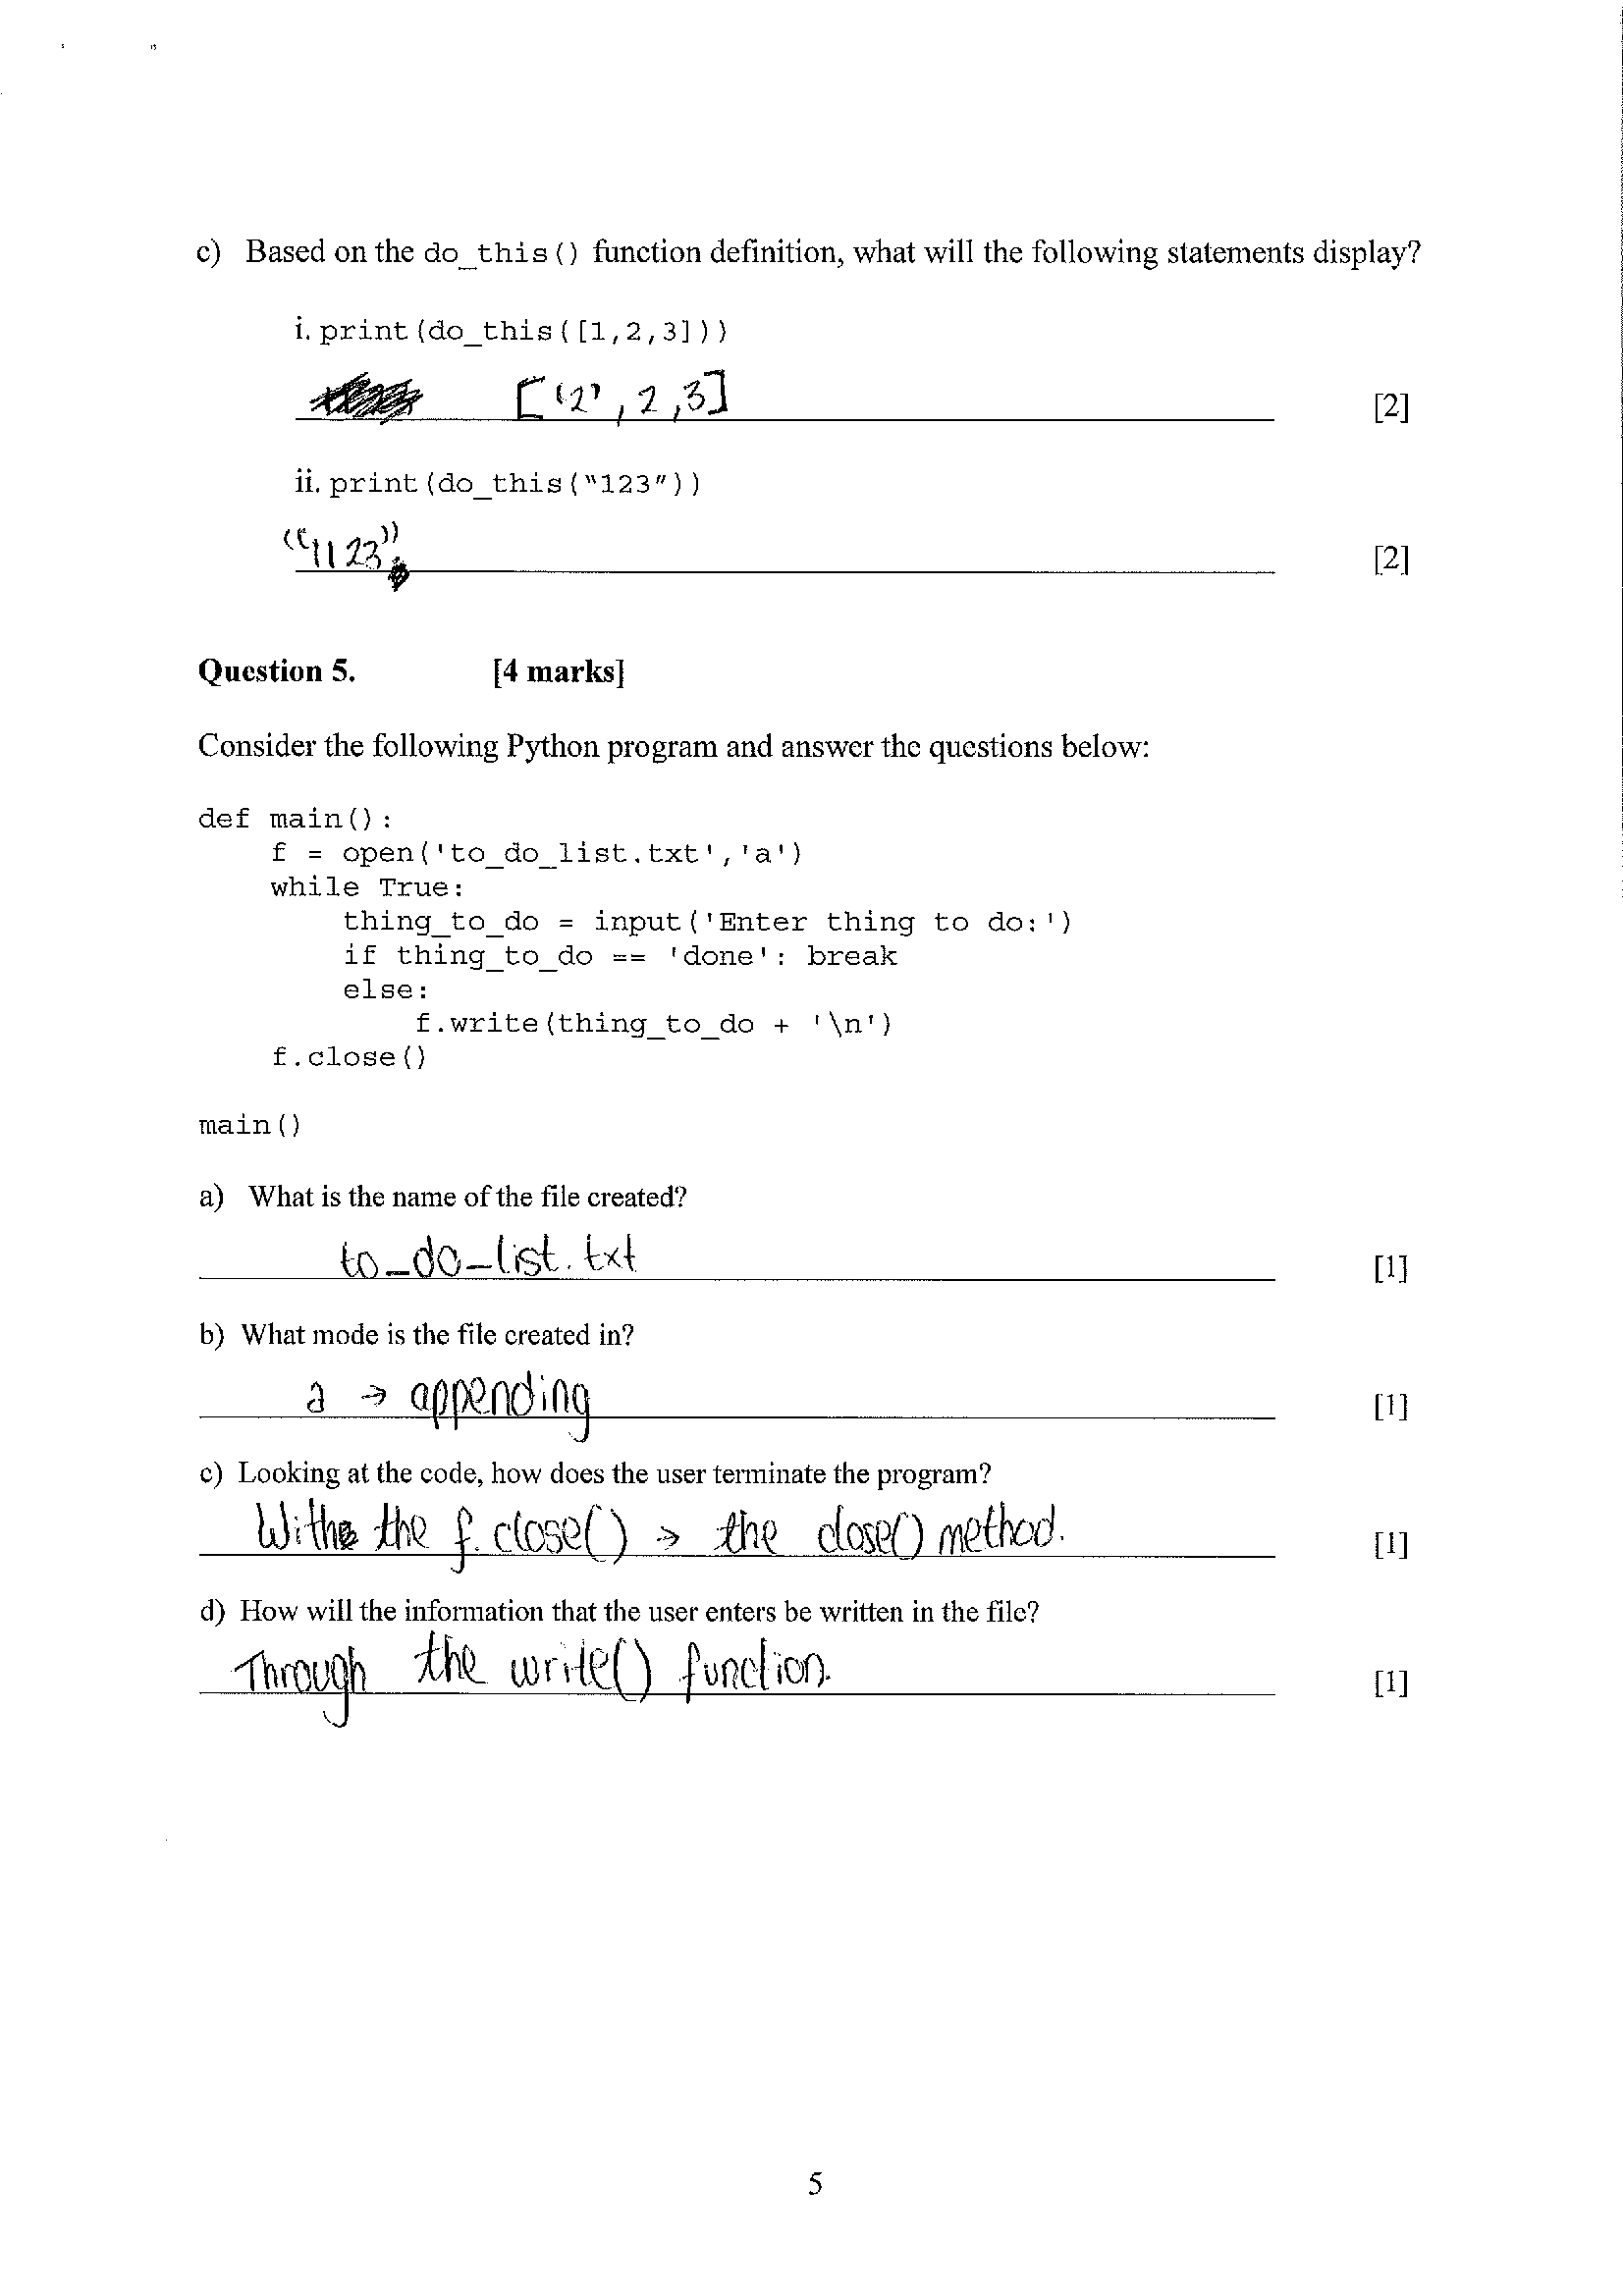 c) Based on the do_this() function definition, what will the following statements display?
i. print(do_this([1,2,3]))
['2', 2, 3] [2]
ii. print(do_this("123"))
"1123" [2]
Question 5. [4 marks]
Consider the following Python program and answer the questions below:
def main():
    f = open('to_do_list.txt','a')
    while True:
        thing_to_do = input('Enter thing to do:')
        if thing_to_do == 'done': break
        else:
            f.write(thing_to_do + '\n')
    f.close()
main()
a) What is the name of the file created?
to_do_list.txt [1]
b) What mode is the file created in?
a → appending [1]
c) Looking at the code, how does the user terminate the program?
With the f.close() → the close() method. [1]
d) How will the information that the user enters be written in the file?
Through the write() function. [1]
5